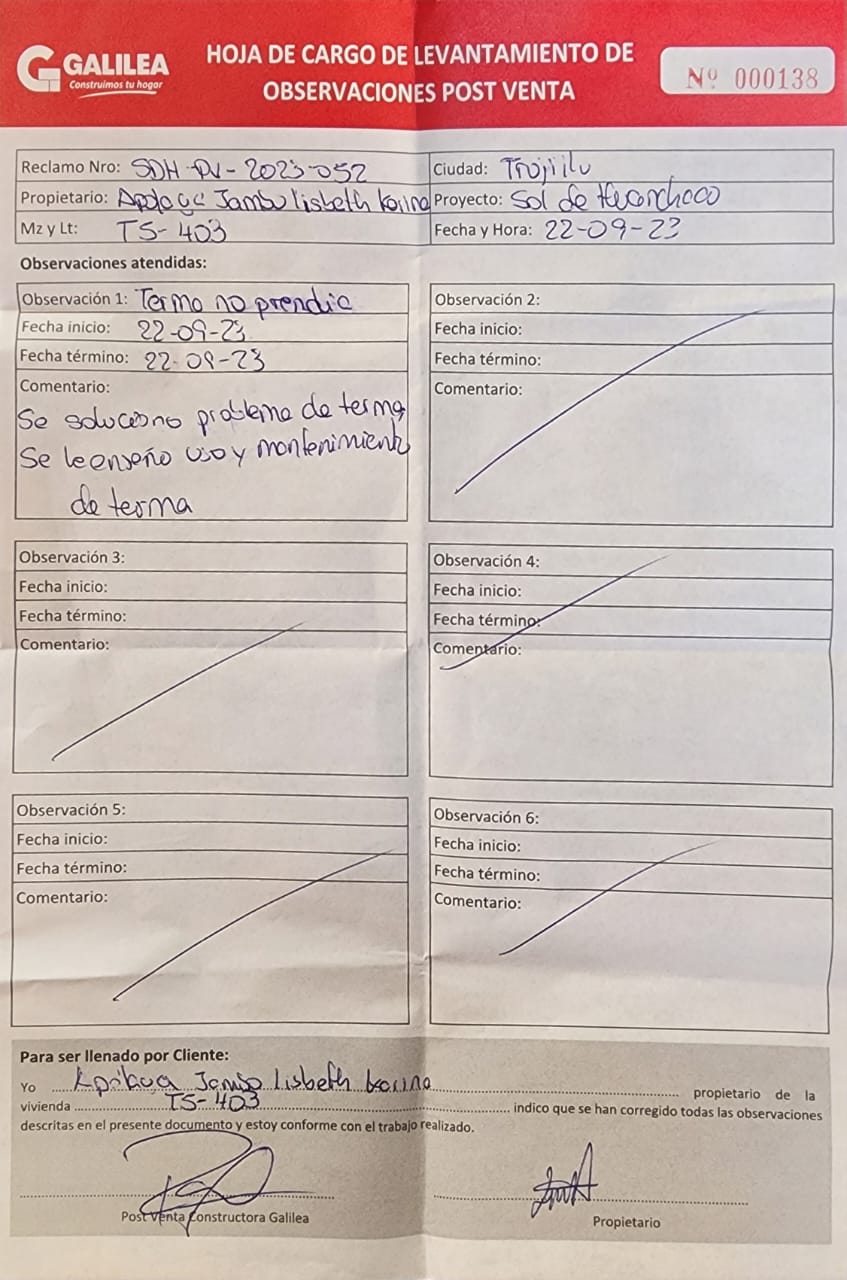 GALILEA
Construimos tu hogar
HOJA DE CARGO DE LEVANTAMIENTO DE
OBSERVACIONES POST VENTA
Nº 000138
Reclamo Nro: SDH-PV-2023-052
Ciudad: Trujillo
Propietario: Lisbeth Karina
Proyecto: Sol de Huanchaco
Mz y Lt: TS-403
Fecha y Hora: 22-09-23
Observaciones atendidas:
Observación 1: Terma no prendia
Fecha inicio: 22-09-23
Fecha término: 22-09-23
Comentario:
Se soluciono problema de terma
Se le enseño uso y mantenimiento
de terma
Observación 2:
Fecha inicio:
Fecha término:
Comentario:
Observación 3:
Fecha inicio:
Fecha término:
Comentario:
Observación 4:
Fecha inicio:
Fecha término:
Comentario:
Observación 5:
Fecha inicio:
Fecha término:
Comentario:
Observación 6:
Fecha inicio:
Fecha término:
Comentario:
Para ser llenado por Cliente:
Yo Lisbeth Karina propietario de la
vivienda TS-403 indico que se han corregido todas las observaciones
descritas en el presente documento y estoy conforme con el trabajo realizado.
Post Venta Constructora Galilea
Propietario